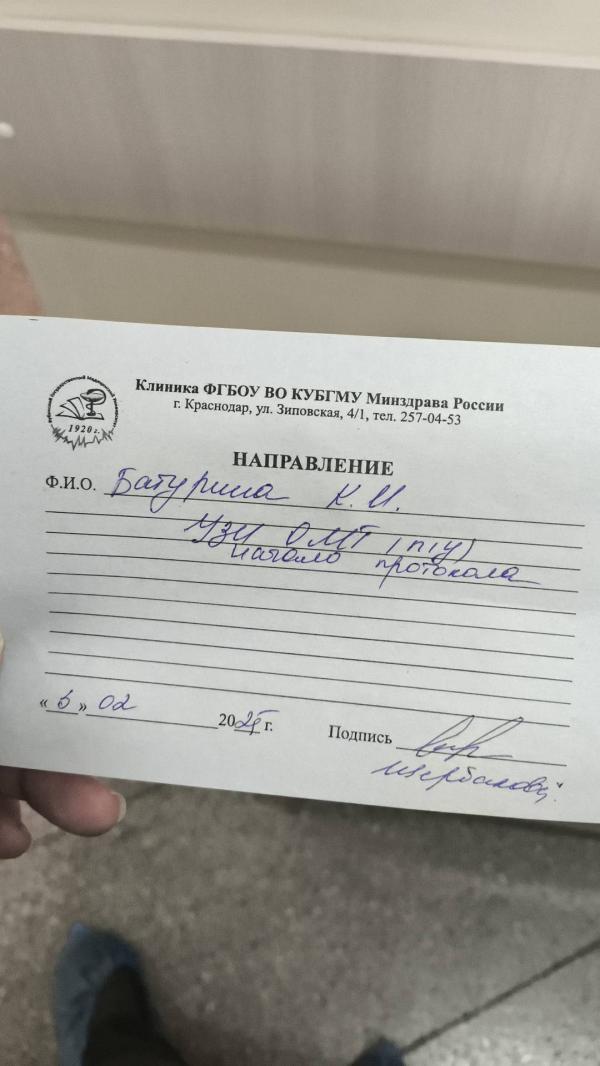 Клиника ФГБОУ ВО КУБГМУ Минздрава России
г. Краснодар, ул. Зиповская, 4/1, тел. 257-04-53
1920 г.
НАПРАВЛЕНИЕ
Ф.И.О. Батурина К. И.
УЗИ ОМТ (п/у)
начало протокола
« 5 » 02 2025 г. Подпись
Щербаковой